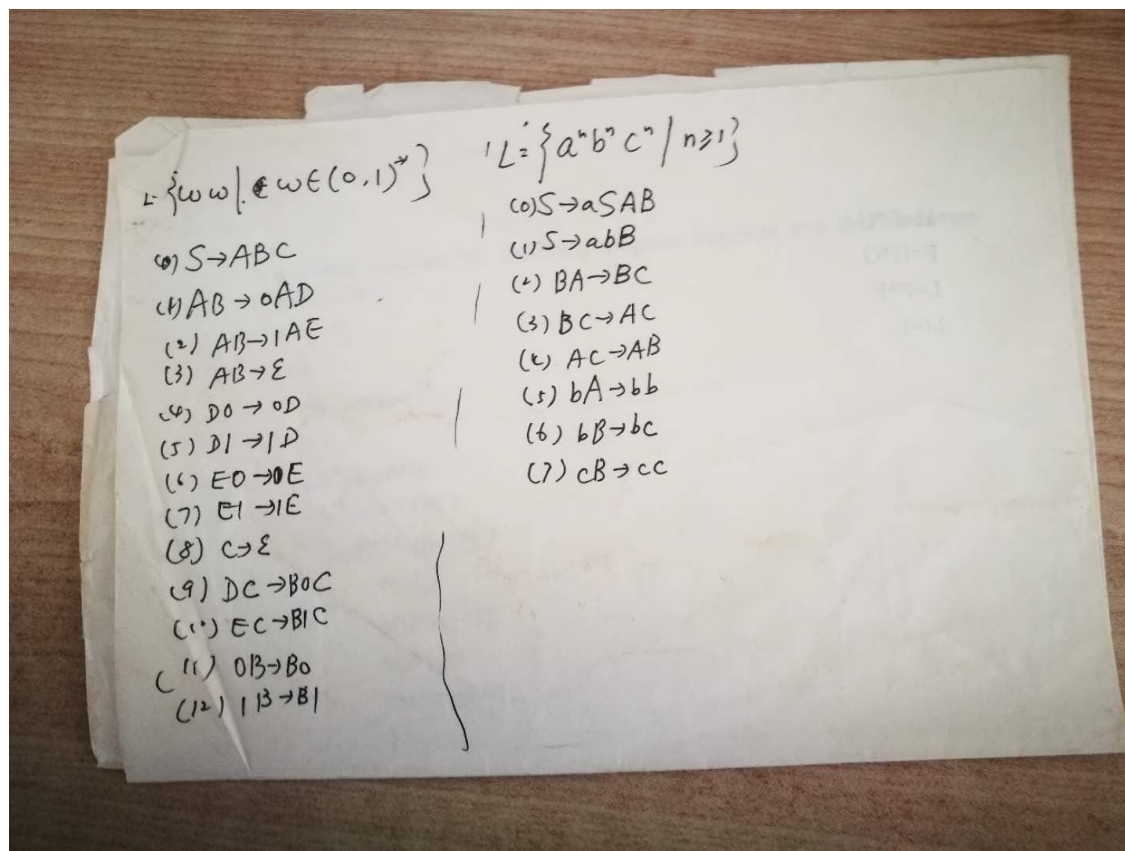 L={ωω|.ω∈(0,1)*}
(0) S→ABC
(1) AB→0AD
(2) AB→1AE
(3) AB→ε
(4) D0→0D
(5) D1→1D
(6) E0→0E
(7) E1→1E
(8) C→ε
(9) DC→B0C
(10) EC→B1C
(11) 0B→B0
(12) 1B→B1
L={aⁿbⁿcⁿ|n≥1}
(0) S→aSAB
(1) S→abB
(2) BA→BC
(3) BC→AC
(4) AC→AB
(5) bA→bb
(6) bB→bc
(7) cB→cc